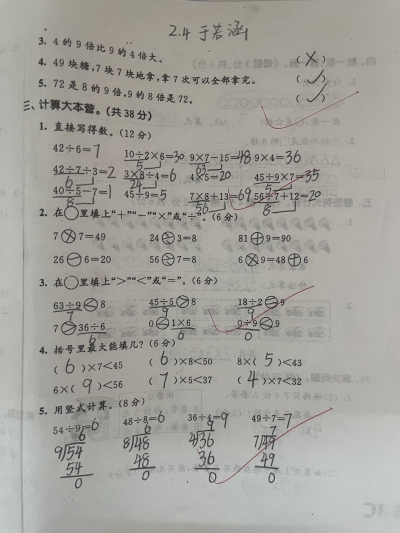 2.4 于若涵
3. 4的9倍比9的4倍大。 (×)
4. 49块糖,7块7块地拿,拿7次可以全部拿完。 (✓)
5. 72是8的9倍,9的8倍是72。 (✓)
三、计算大本营。(共38分)
1. 直接写得数。(12分)
42÷6=7 10÷2×6=30 9×7-15=48 9×4=36
5 63
42÷7÷3=2 3×8÷4=6 4×5=20 45÷9×7=35
6 24 5
40÷5-7=1 45÷9=5 7×8+13=69 56÷7+12=20
8 56 8
2. 在○里填上“+”“-”“×”或“÷”。(6分)
7×7=49 24÷3=8 81+9=90
26-6=20 56÷7=8 6×9=48+6
3. 在○里填上“>”“<”或“=”。(6分)
63÷9<8 45÷5>8 18÷2=9
7 9 9
7>36÷6 0<1×6 0÷9<9
6 6 0
4. 括号里最大能填几?(6分)
(6)×7<45 (6)×8<50 8×(5)<43
6×(9)<56 (7)×5<37 (4)×7<32
5. 用竖式计算。(8分)
54÷9=6 48÷8=6 36÷4=9 49÷7=7
6 6 9 7
9)54 8)48 4)36 7)49
54 48 36 49
0 0 0 0